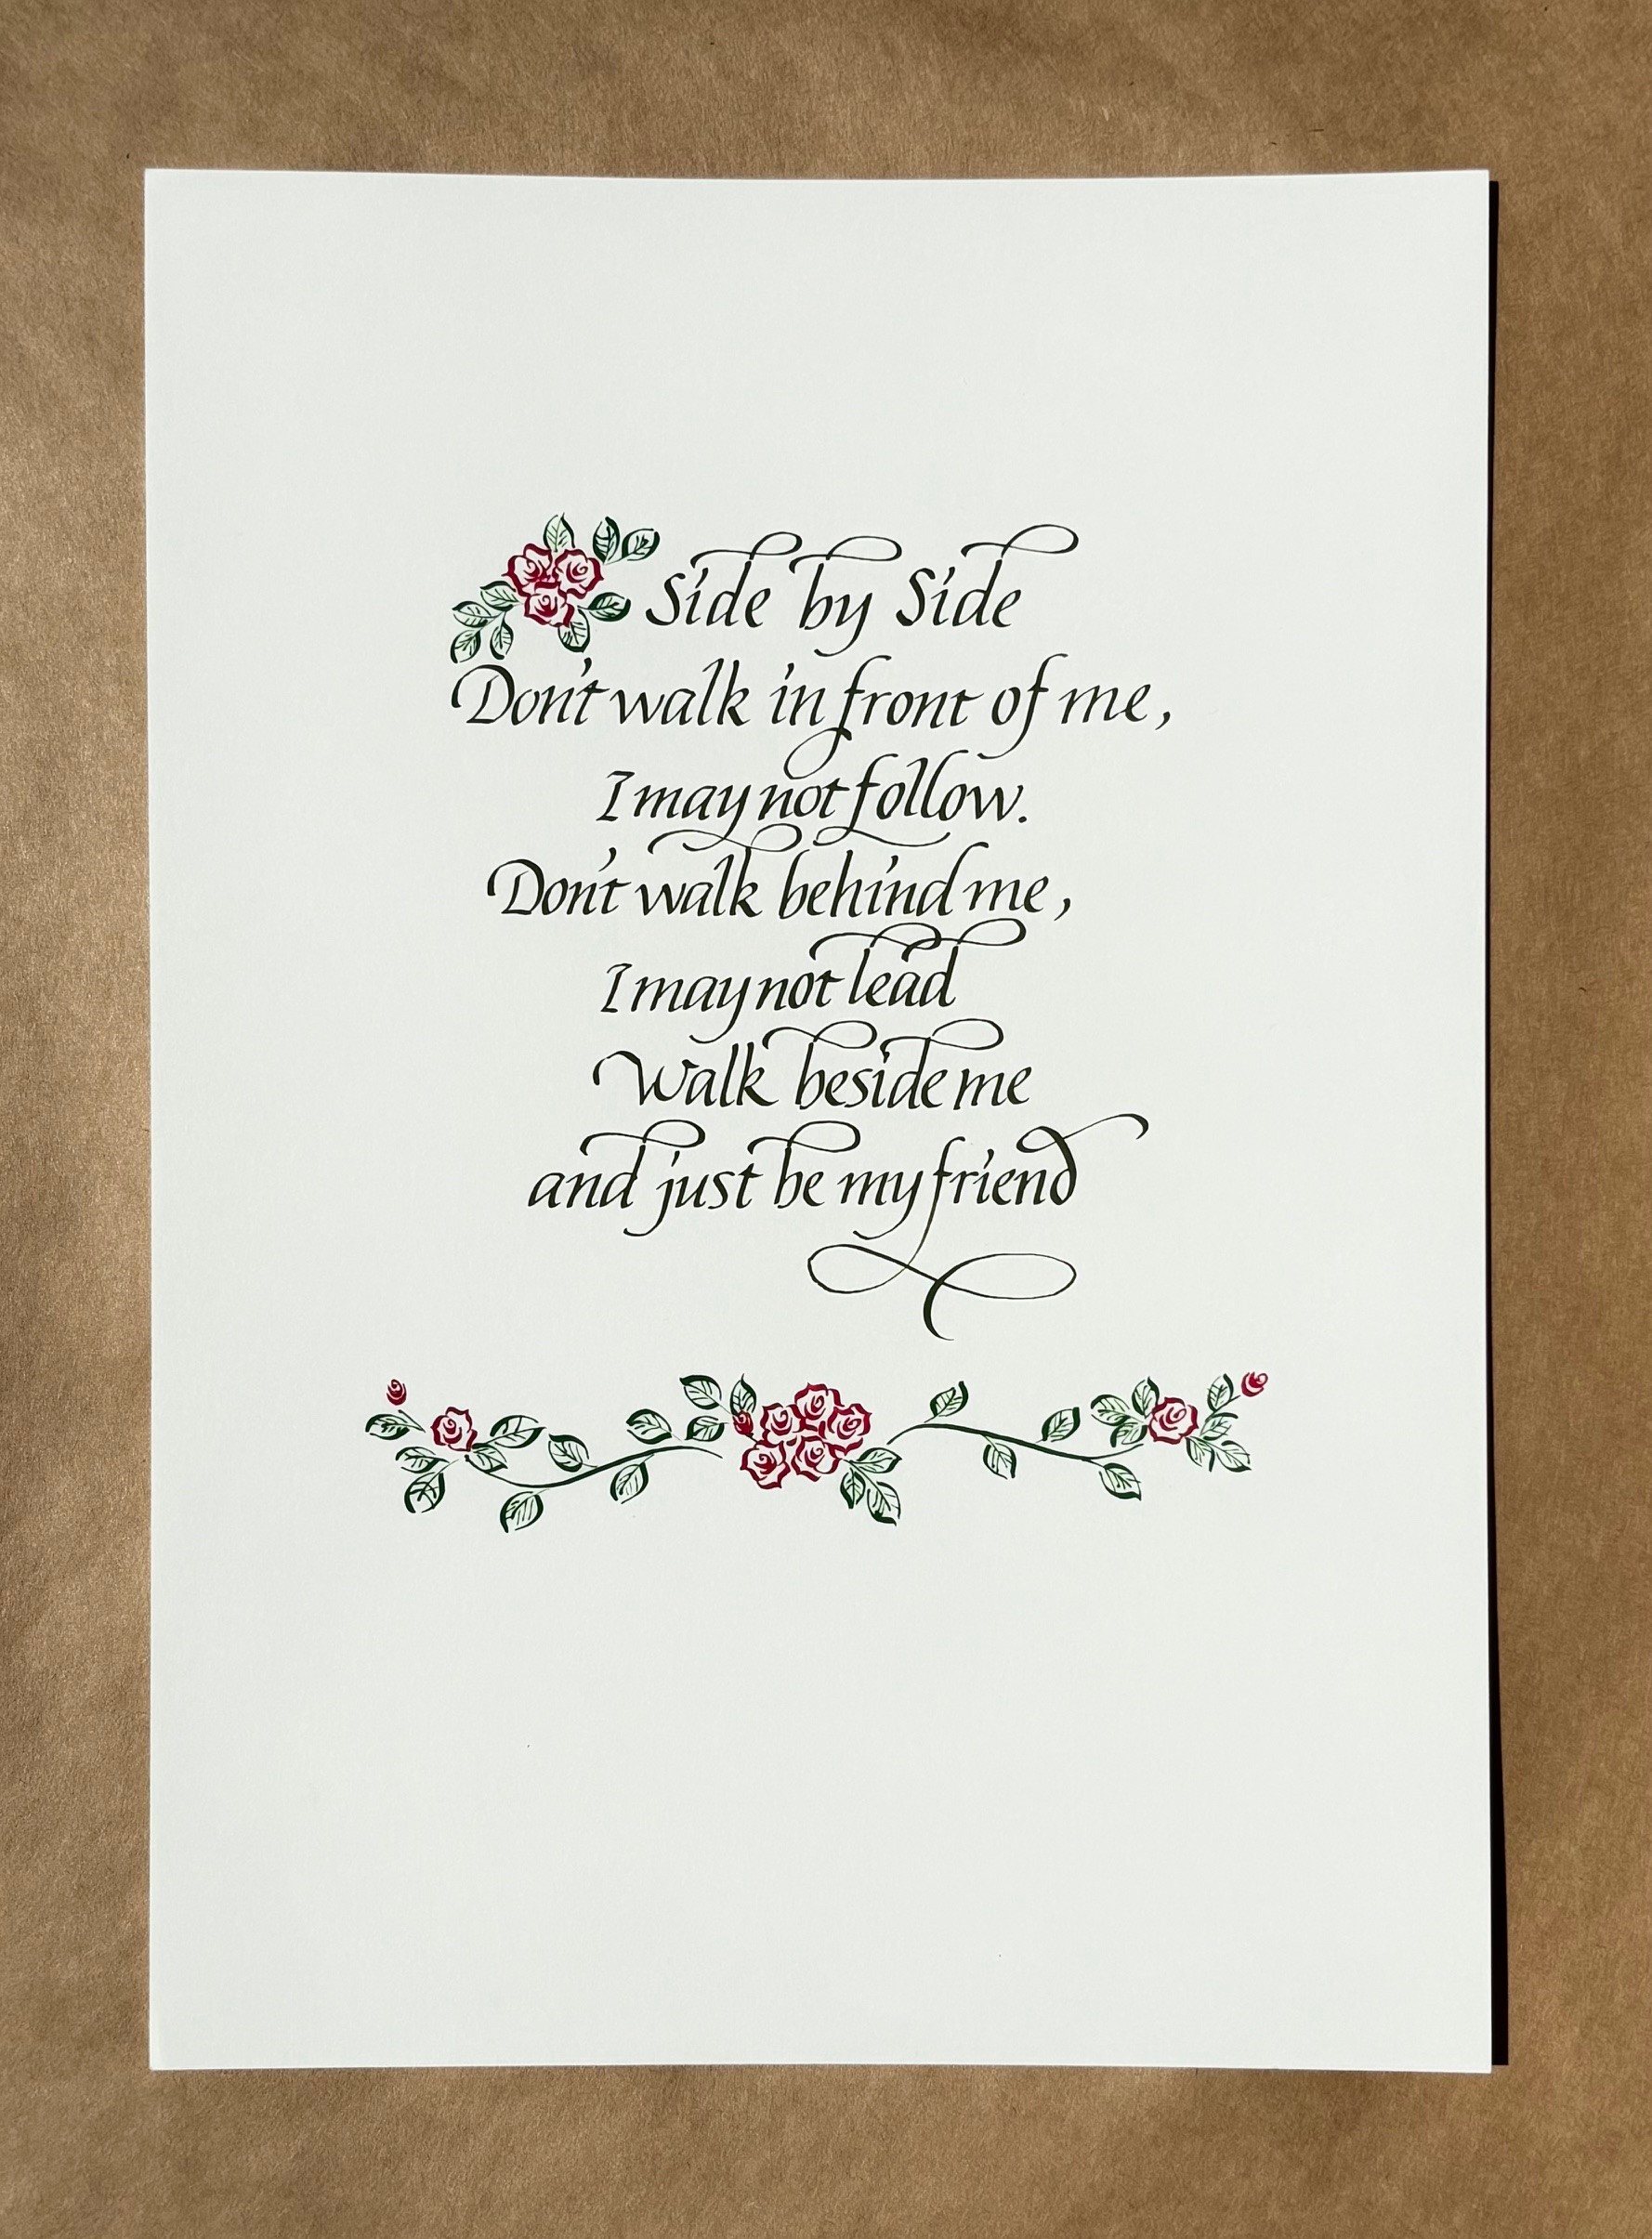 Side by Side
Don't walk in front of me,
I may not follow.
Don't walk behind me,
I may not lead
Walk beside me
and just be my friend